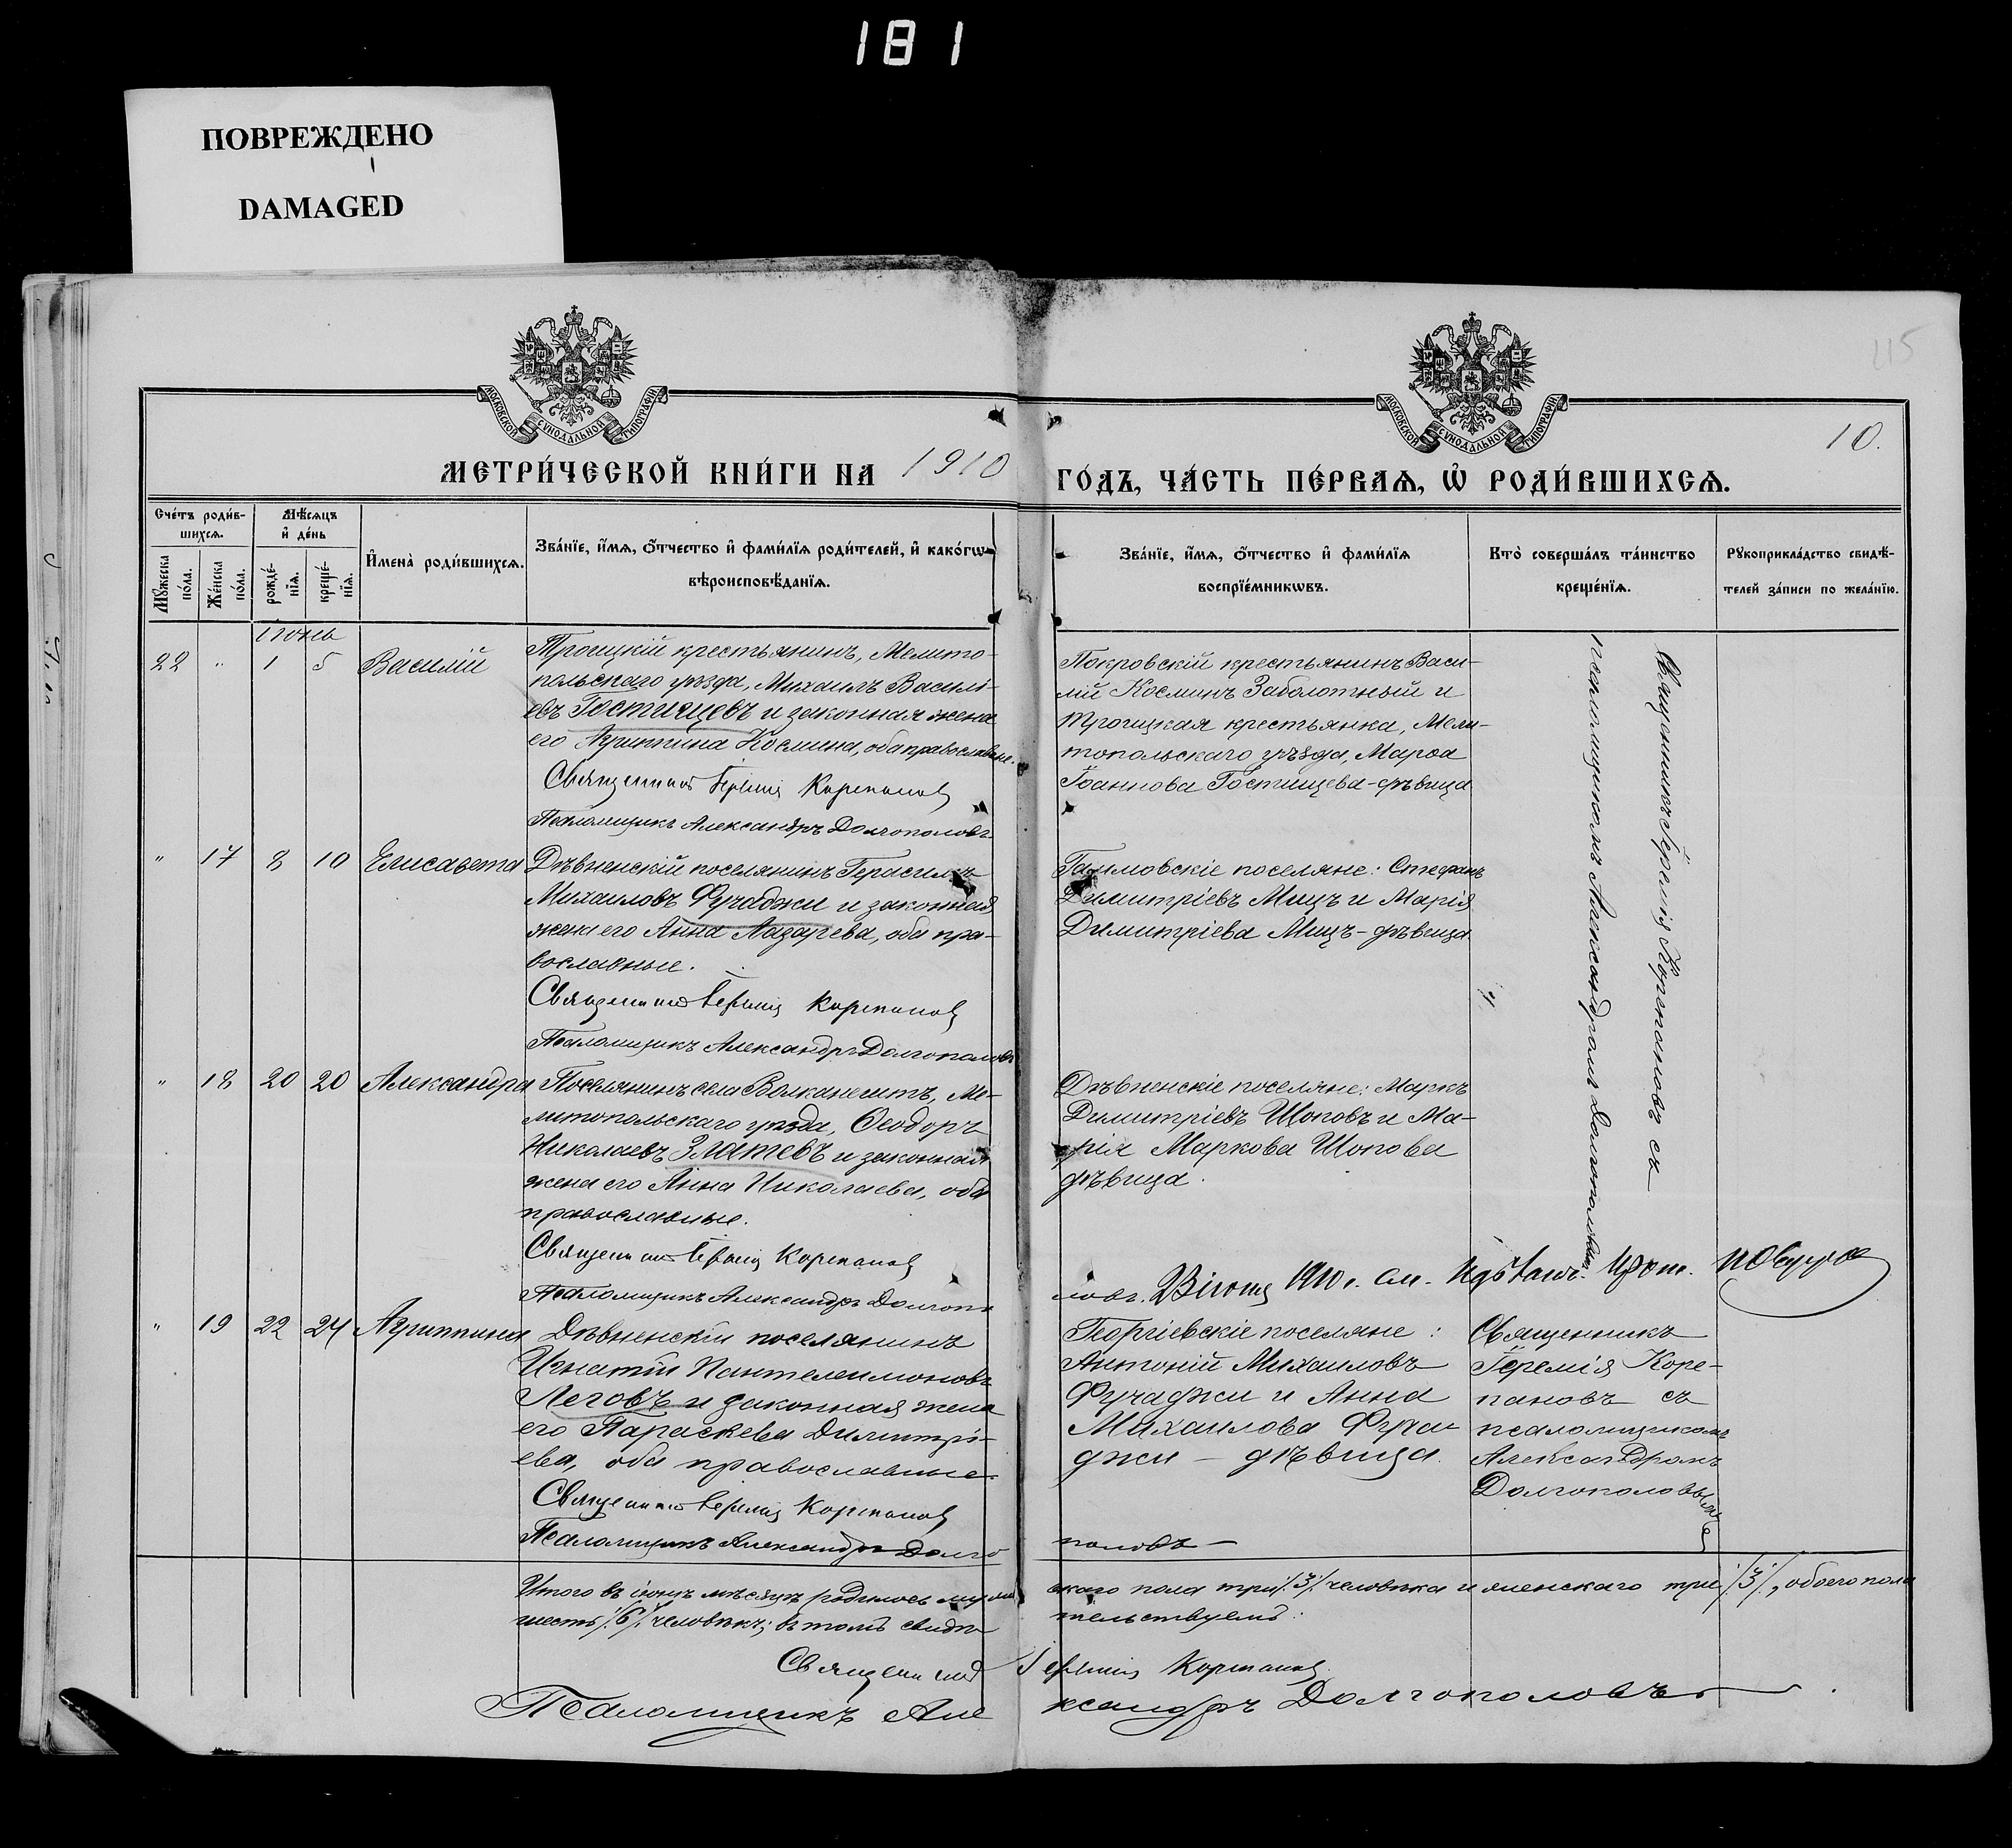 181
ПОВРЕЖДЕНО
DAMAGED
115
10.
МОСКОВСКОЙ СѴНОДАЛЬНОЙ ТИПОГРАФІИ
МОСКОВСКОЙ СѴНОДАЛЬНОЙ ТИПОГРАФІИ
МЕТРИ́ЧЕСКОЙ КНИ́ГИ НА 1910 ГО́ДЪ, ЧА́СТЬ ПЕ́РВАѦ, Ѽ РОДИ́ВШИХСѦ.
Сче́тъ роди́в-
шихсѧ.
Мꙋжеска по́ла.
Же́нска по́ла.
Мѣ́сѧцъ
и҆ де́нь
рожде́-
нїѧ.
креще́-
нїѧ.
И҆мена̀ роди́вшихсѧ.
Зва́нїе, и҆́мѧ, ѻ҆́тчество и҆ фами́лїѧ роди́телей, и҆ како́гѡ
вѣроисповѣ́данїѧ.
Зва́нїе, и҆́мѧ, ѻ҆́тчество и҆ фами́лїѧ
воспрїе́мникѡвъ.
Кто̀ соверша́лъ та́инство
креще́нїѧ.
Рꙋкоприкла́дство свидѣ́-
телей за́писи по жела́нїю.
іюнь
22 " 1 5 Василій
Троицкій крестьянинъ, Мелито-
польскаго уѣзда, Михаилъ Василі-
евъ Гостищевъ и законная жена
его Агриппина Космина, оба православные.
Священникъ Іеремія Корепановъ
Псаломщикъ Александръ Долгополовъ
Покровскій крестьянинъ Васи-
лій Косминъ Заболотный и
Троицкая крестьянка, Мели-
топольскаго уѣзда, Марѳа
Іоаннова Гостищева-дѣвица
Священникъ Іеремія Корепановъ съ
псаломщикомъ Александромъ Долгополовымъ
" 17 8 10 Елисавета
Дѣвненскій поселянинъ Герасимъ
Михаиловъ Фучаджи и законная
жена его Анна Лазарева, оба пра-
вославные.
Священникъ Іеремія Корепановъ
Псаломщикъ Александръ Долгополовъ
Стефанъ
Димитріевъ Мицъ и Марія
Димитріева Мицъ-дѣвица
" 18 20 20 Александра
Поселянинъ села Волканештъ, Ме-
литопольскаго уѣзда, Ѳеодоръ
Николаевъ Златевъ и законная
жена его Анна Николаева, оба
православные.
Священникъ Іеремія Корепановъ
Псаломщикъ Александръ Долгопо
ловъ.
Дѣвненскіе поселяне: Маркъ
Димитріевъ Шоповъ и Ма-
рія Маркова Шопова
дѣвица.
1910 г.
" 19 22 24 Агриппина
Дѣвненскій поселянинъ
Игнатій Пантелеимоновъ
Леговъ и законная жена
его Параскева Димитрі-
ева, оба православные
Священникъ Іеремія Корепановъ
Псаломщикъ Александръ Долго
половъ
Георгіевскіе поселяне:
Антоній Михаиловъ
Фучаджи и Анна
Михаилова Фуча-
джи - дѣвица.
Священникъ
Іеремія Коре-
пановъ съ
псаломщикомъ
Александромъ
Долгополовымъ
Итого въ іюнѣ мѣсяцѣ родилось мужескаго пола три /3/ человѣка и женскаго три /3/, обоего пола
шесть /6/ человѣкъ; въ томъ свидѣтельствуемъ:
Священникъ Іеремія Корепановъ
Псаломщикъ Александръ Долгополовъ